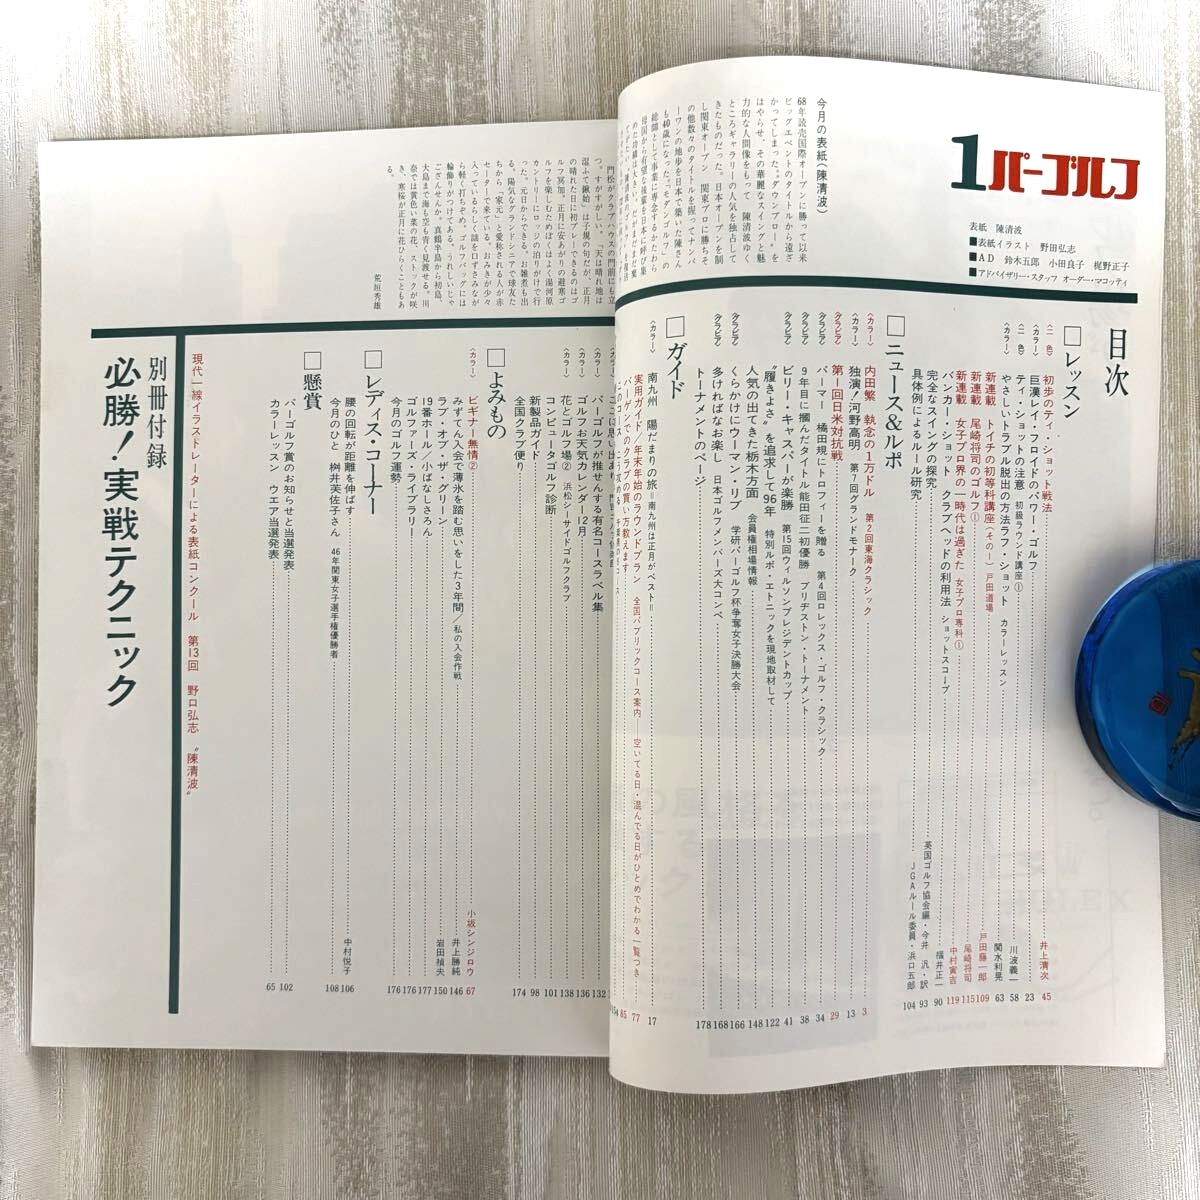 1 パーゴルフ
表紙 陳清波
■表紙イラスト 野田弘志
■AD 鈴木五郎 小田良子 梶野正子
■アドバイザリー・スタッフ オーダー・マコッティ
今月の表紙(陳清波)
68年読売国際オープンに勝って以来
ビッグエベントのタイトルから遠ざ
かってしまった〝ダウンブロー〟を
はやらせ、その華麗なスイングと魅
力的な人間像をもって 陳清波ゆく
ところギャラリーの人気を独占して
きたものだった。日本オープンを制
し関東オープン 関東プロに勝ちそ
の他数々のタイトルを握ってナンバ
ーワンの地歩を日本で築いた陳さん
も40歳になった。「モダンゴルフ」の
総師として事業に専念するかたわら
母国から有望な後輩を日本に呼び集
めた功績は大きい。だがまだまだ棄
目次
□レッスン
〈二色〉 初歩のティ・ショット戦法 井上清次 45
〈カラー〉 巨漢レイ・フロイドのパワー・ゴルフ 23
〈二色〉 ティ・ショットの注意 初級ラウンド講座① 川波義一 58
〈カラー〉 やさしいトラブル脱出の方法ラフ・ショット カラーレッスン 関水利晃 63
新連載 トイチの初等科講座(その一) 戸田道場 戸田藤一郎 109
新連載 尾崎将司のゴルフ① 尾崎将司 115
新連載 女子プロ界の一時代は過ぎた 女子プロ専科① 中村寅吉 119
バンカー・ショット クラブヘッドの利用法 ショットスコープ 福井正一 90
完全なスイングの探究 英国ゴルフ協会編・今井 汎・訳 93
具体例によるルール研究 JGAルール委員・浜口五郎 104
□ニュース&ルポ
〈カラー〉 内田繁 執念の1万ドル 第2回東海クラシック 3
〈カラー〉 独演!河野高明 第7回グランドモナーク 13
〈グラビア〉 第1回日米対抗戦 29
〈グラビア〉 パーマー 橘田規にトロフィーを贈る 第4回ロレックス・ゴルフ・クラシック 34
〈グラビア〉 9年目に摑んだタイトル能田征二初優勝 ブリヂストン・トーナメント 38
〈グラビア〉 ビリー・キャスパーが楽勝 第15回ウィルソンプレジデントカップ 41
〝履きよさ〟を追求して96年 特別ルポ・エトニックを現地取材して 122
人気の出てきた栃木方面 会員権相場情報 148
〈グラビア〉 くらかけにウーマン・リブ 学研パーゴルフ杯争奪女子決勝大会 166
〈グラビア〉 多ければなお楽し 日本ゴルフメンバーズ大コンペ 168
トーナメントのページ 178
□ガイド
〈カラー〉 南九州 陽だまりの旅=南九州は正月がベスト= 17
実用ガイド/年末年始のラウンドプラン 全国パブリックコース案内―空いてる日・混んでる日がひとめでわかる一覧つき 77
バーゲンでのクラブの買い方教えます 85
〈カラー〉 パーゴルフが推せんする有名コースラベル集 132
〈カラー〉 ゴルフお天気カレンダー12月 136
〈カラー〉 花とゴルフ場② 浜松シーサイドゴルフクラブ 138
コンピュータゴルフ診断 101
新製品ガイド 98
全国クラブ便り 174
□よみもの
〈カラー〉 ビギナー無情② 小坂シンジロウ 67
みずてん入会で薄氷を踏む思いをした3年間/私の入会作戦 井上勝純 146
ラブ・オブ・ザ・グリーン 岩田禎夫 150
19番ホール/小ばなしさろん 177
ゴルファーズ・ライブラリー 176
今月のゴルフ運勢 176
□レディス・コーナー
腰の回転が距離を伸ばす 中村悦子 106
今月のひと 桝井芙佐子さん 46年関東女子選手権優勝者 108
□懸賞
パーゴルフ賞のお知らせと当選発表 102
カラーレッスン ウエア当選発表 65
現代一線イラストレーターによる表紙コンクール 第13回 野口弘志 〝陳清波〟
別冊付録
必勝!実戦テクニック
門松がクラブハウスの門前にも立
つ。すがすがしい。「天は晴れ地は
湿ふて鍬始」は子規の句だが、正月
の晴れた日に初プレーできるのはゴ
ルフ冥加。正月に安あがりの避寒ゴ
ルフを楽しむためぼくはよく湯河原
カントリーにロッジの泊りがけで行
った。元日からできる。お雑煮も出
る。陽気なグランドシニアで球友た
ちから〝家元〟と愛称される人が赤
セーターで来ている。おみきが少々
入っているらしく謡を口ずさみなが
ら軽く打ちぞめ。ゴルフバッグには
輪飾りがつけてある。うれしいじゃ
ございませんか。真鶴半島から初島、
大島まで海も空も青く見渡せる。川
奈では黄色い菜の花、ストックが咲
き、寒桜が正月に花ひらくこともあ
る。
荒垣秀雄